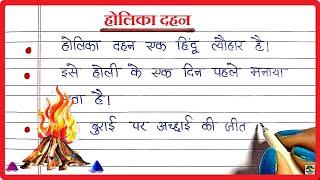 होलिका दहन
होलिका दहन एक हिंदू त्यौहार है।
इसे होली के एक दिन पहले मनाया
ता है।
बुराई पर अच्छाई की जीत